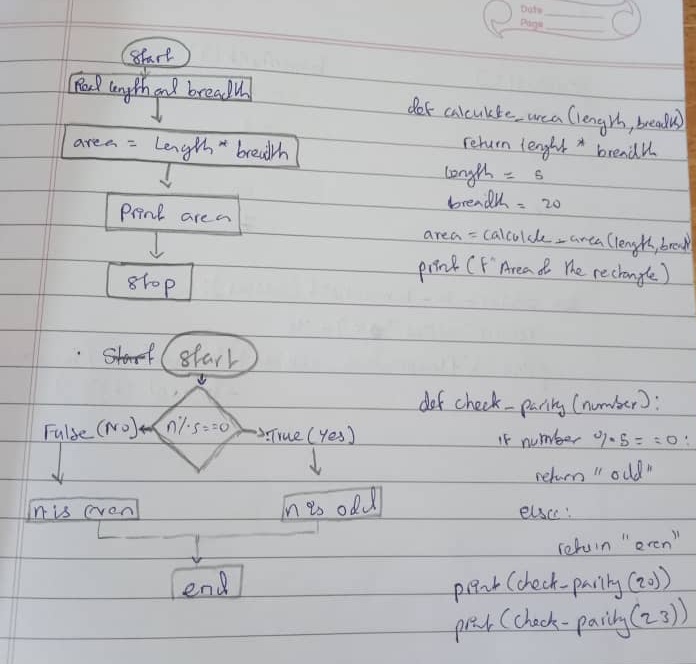 Date
Page
Start
Read length and breadth
area = Length * breadth
Print area
Stop
def calculate_area (length, breadth)
return lenght * breadth
length = 5
breadth = 20
area = calculate_area (length, bread
print (f" Area of the rectangle)
Start Start
n%5==0
False (No)
True (Yes)
n is even
n is odd
end
def check_parity (number):
if number % 5 = = 0:
return "odd"
else:
return "even"
print (check-parity (20))
print (check-parity (23))